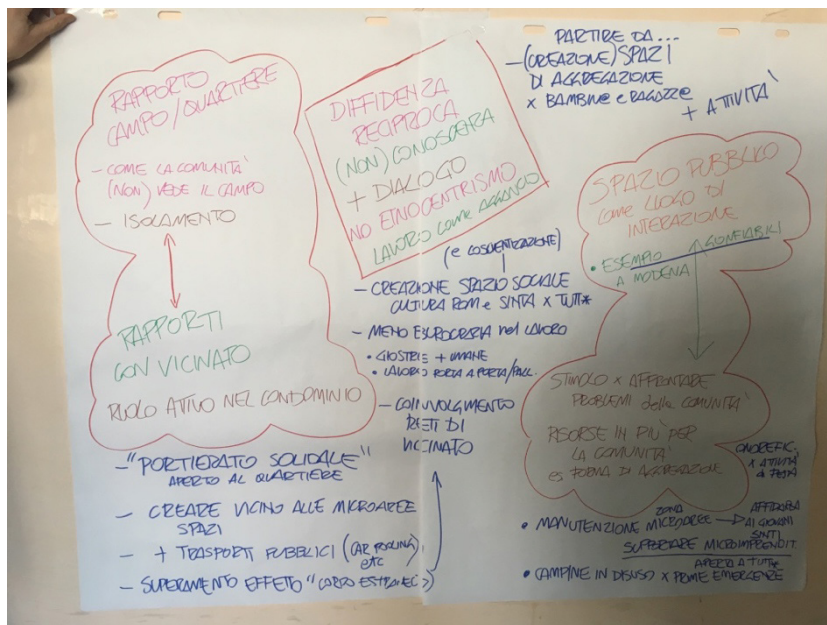 RAPPORTO
CAMPO/QUARTIERE
- COME LA COMUNITA'
(NON) VEDE IL CAMPO
- ISOLAMENTO
RAPPORTI
CON VICINATO
RUOLO ATTIVO NEL CONDOMINIO
- "PORTIERATO SOLIDALE"
APERTO AL QUARTIERE
- CREARE VICINO ALLE MICROAREE
SPAZI
- + TRASPORTI PUBBLICI (CAR POOLING,
etc
- SUPERAMENTO EFFETTO "CORPO ESTRANEO"
DIFFIDENZA
RECIPROCA
(NON) CONOSCENZA
+ DIALOGO
NO ETNOCENTRISMO
LAVORO COME AGGANCIO
(e COSCIENTIZZAZIONE)
- CREAZIONE SPAZIO SOCIALE
CULTURA ROM e SINTA X TUTT*
- MENO BUROCRAZIA nel LAVORO
• GIOSTRE + UMANE
• LAVORO PORTA A PORTA/
- COINVOLGIMENTO
RETI DI
VICINATO
PARTIRE DA...
- (CREAZIONE) SPAZI
DI AGGREGAZIONE
X BAMBIN@ e RAGAZZ@
+ ATTIVITA'
SPAZIO PUBBLICO
COME LUOGO DI
INTERAZIONE
• ESEMPIO GONFIABILI
A MODENA
STIMOLO X AFFRONTARE
PROBLEMI della COMUNITA'
RISORSE IN PIÙ PER
LA COMUNITA'
es FORMA DI AGGREGAZIONE
X ATTIVITÀ
FESTA
• MANUTENZIONE ZONA MICROAREE → AFFIDARLA
AI GIOVANI
SINTI
SUPPORTARE MICROIMPRENDIT.
APERTO A TUTT*
• CAMPINE IN DISUSO X PRIME EMERGENZE